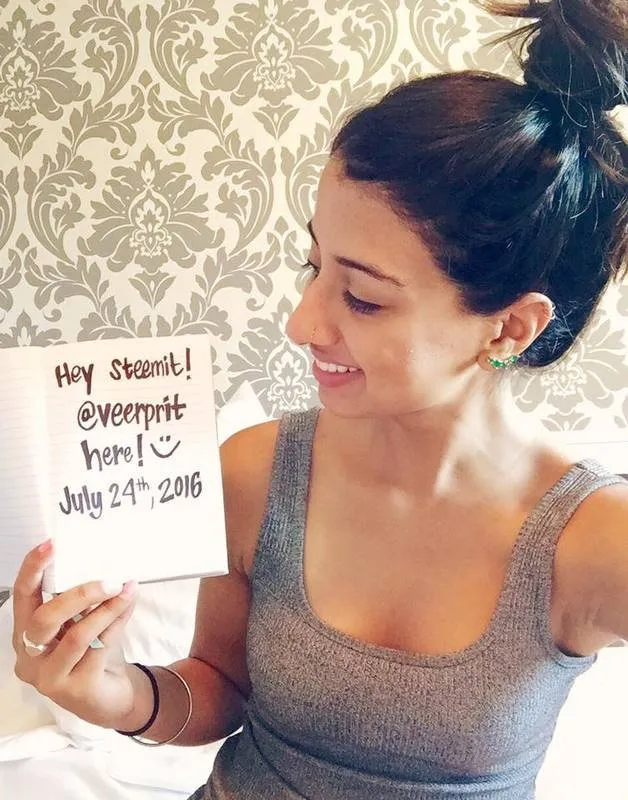 Hey Steemit!
@veerprit
here! :)
July 24th, 2016